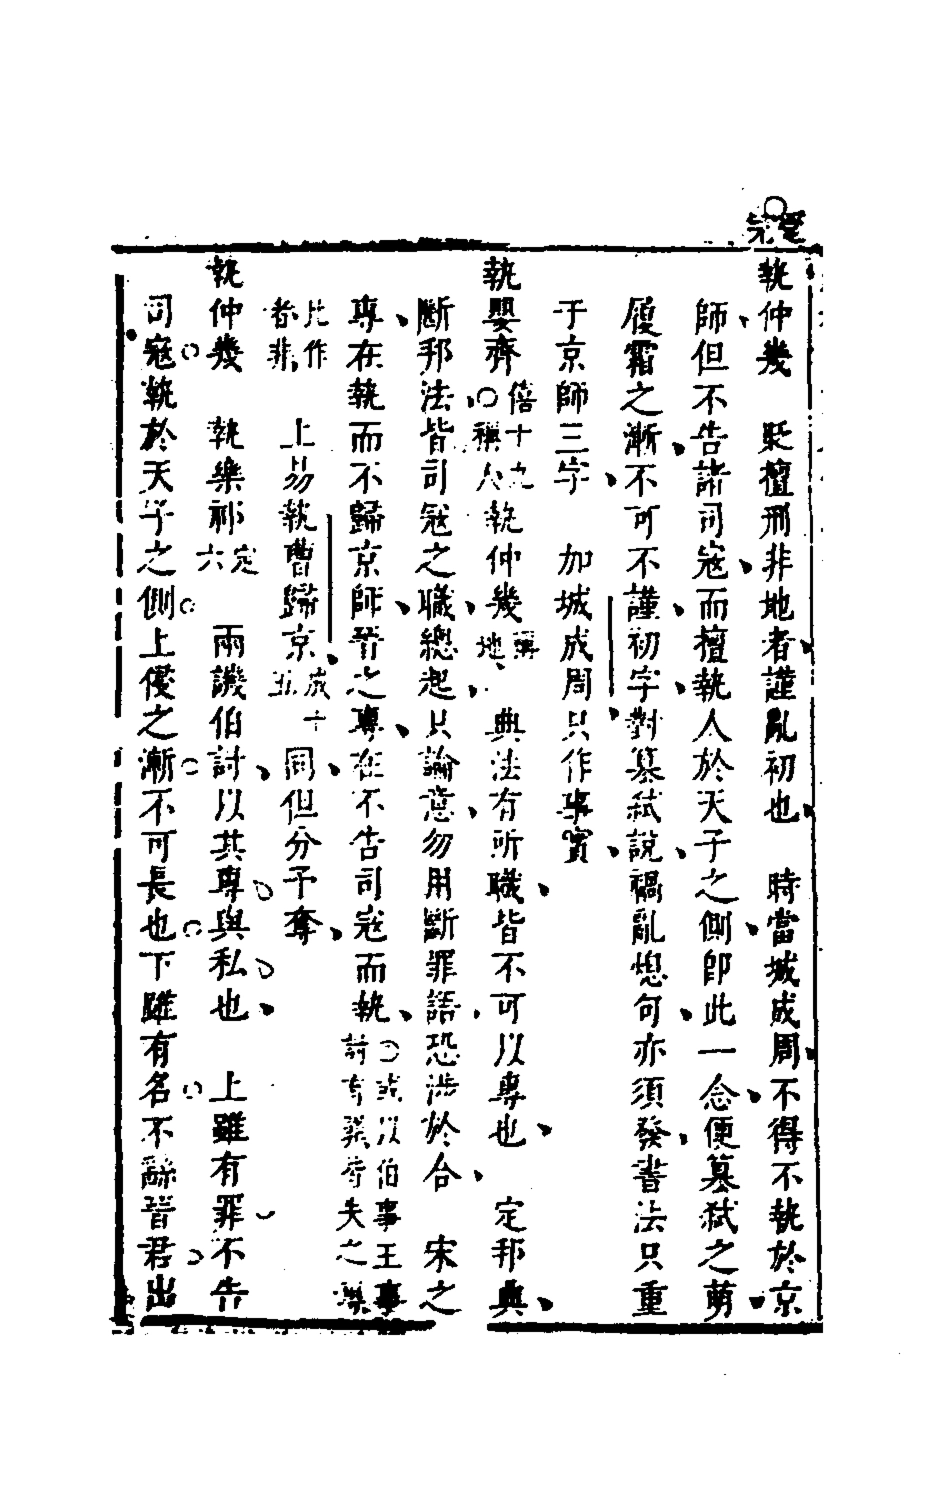 執仲幾　貶擅刑非地者謹亂初也　時當城成周不得不執於京
師但不告諸司寇而擅執人於天子之側即此一念便篡弒之萌
履霜之漸不可不謹初字對篡弒說禍亂熄句亦須發書法只重
于京師三字　加城成周只作事實
執嬰齊○僖十九稱人執仲幾稱地　典法有所職皆不可以專也　定邦典
斷邦法皆司寇之職總起只論意勿用斷罪語恐涉於合　宋之
專在執而不歸京師晉之專在不告司寇而執○或以伯事王事討有
比作者非　上易執曹歸京成十五同但分予奪
執仲幾　執樂祁定六　兩譏伯討以其專與私也　上雖有罪不告
司寇執於天子之側上僭之漸不可長也下雖有名不辭晉君出